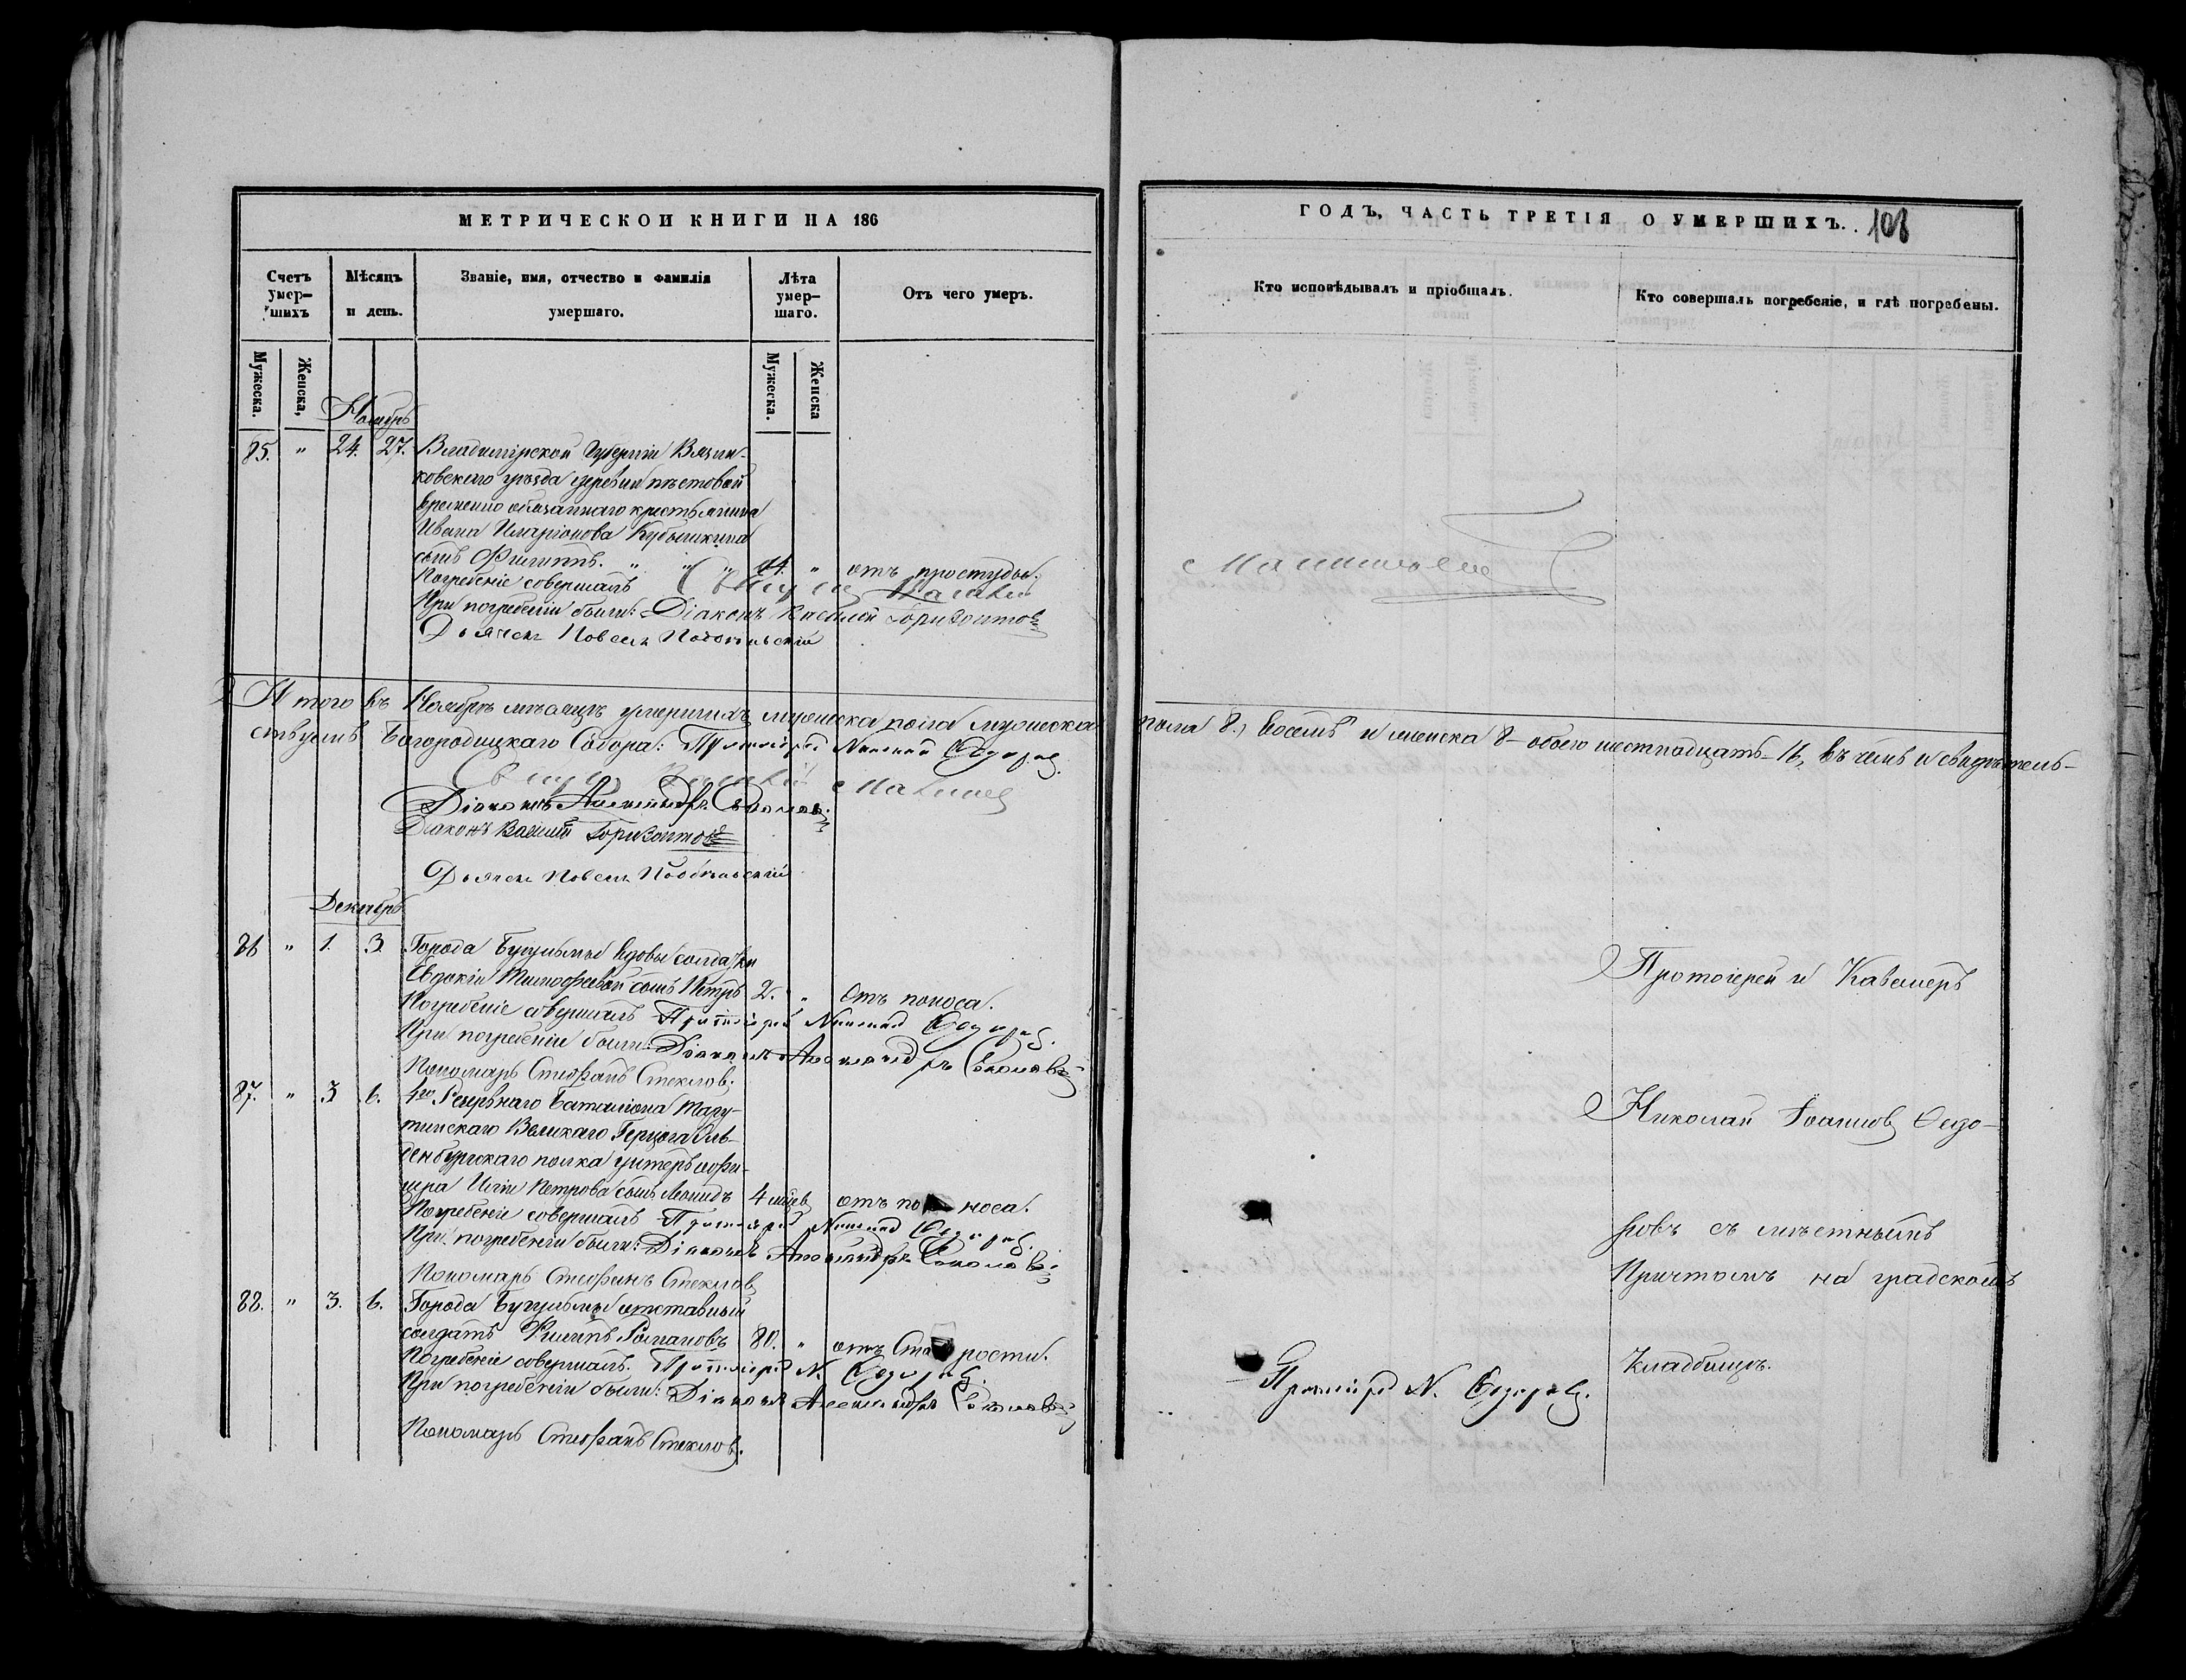 МЕТРИЧЕСКОЙ КНИГИ НА 186
Счетъ умер-шихъ
Мѣсяцъ и день.
Званіе, имя, отчество и фамилія умершаго.
Лѣта умер-шаго.
Отъ чего умеръ.
Мужеска.
Женска,
Мужеска.
Женска
Ноябрь
85. " 24. 27. Владимірской Губерніи Вязни-
ковскаго уѣзда деревни
временно обязаннаго крестьянина
Ивана Иларіонова Кубышкина
сынъ Филиппъ. " " " 14. " отъ простуды.
Погребеніе совершалъ
При погребеніи были: Діаконъ Василій Горизонтовъ
Дьячекъ Павелъ
Итого въ Ноябрѣ мѣсяцѣ умершихъ мужеска пола мужеска
ствуемъ Богородицкаго Собора: Протоіерей Николай Ѳедоровъ.
Діаконъ Александръ Соколовъ
Діаконъ Василій Горизонтовъ
Дьячекъ Павелъ
Декабрь
86 " 1. 3. Города Бугульмы вдовы солдатки
Евдокіи Тимофеевой сынъ Петръ 2. " Отъ поноса.
Погребеніе совершалъ Протоіерей Николай Ѳедоровъ.
При погребеніи были: Діаконъ Александръ Соколовъ
Пономарь Стефанъ Стеклов.
87. " 3 6. 4го Резервнаго Баталіона Тару-
тинскаго Великаго Герцога Оль-
денбургскаго полка унтеръ офи-
цера Иліи Петрова сынъ Леонидъ 4 мѣсяц отъ по носа.
Погребеніе совершалъ Протоіерей Николай Ѳедоровъ.
При погребеніи были: Діаконъ Александръ Соколовъ
Пономарь Стефанъ Стеклов
88. " 3. 6. Города Бугульмы отставный
солдатъ Филипъ Романовъ 80. " отъ Ста рости.
Погребеніе совершалъ. Протоіерей Н. Ѳедоровъ.
При погребеніи были: Діаконъ Александръ Соколовъ
Пономарь Стефанъ Стеклов.
ГОДЪ, ЧАСТЬ ТРЕТІЯ О УМЕРШИХЪ. 108
Кто исповѣдывалъ и пріобщалъ.
Кто совершалъ погребеніе, и гдѣ погребены.
пола 8, восемь и женска 8 - обоего шестнадцать - 16, въ чемъ и свидѣтель-
Протоіерей и Кавалеръ
Николай Іоаннов Ѳедо-
ровъ съ мѣстнымъ
Причтомъ на градскомъ
кладбищѣ.
Протоіерей Н. Ѳедоровъ.